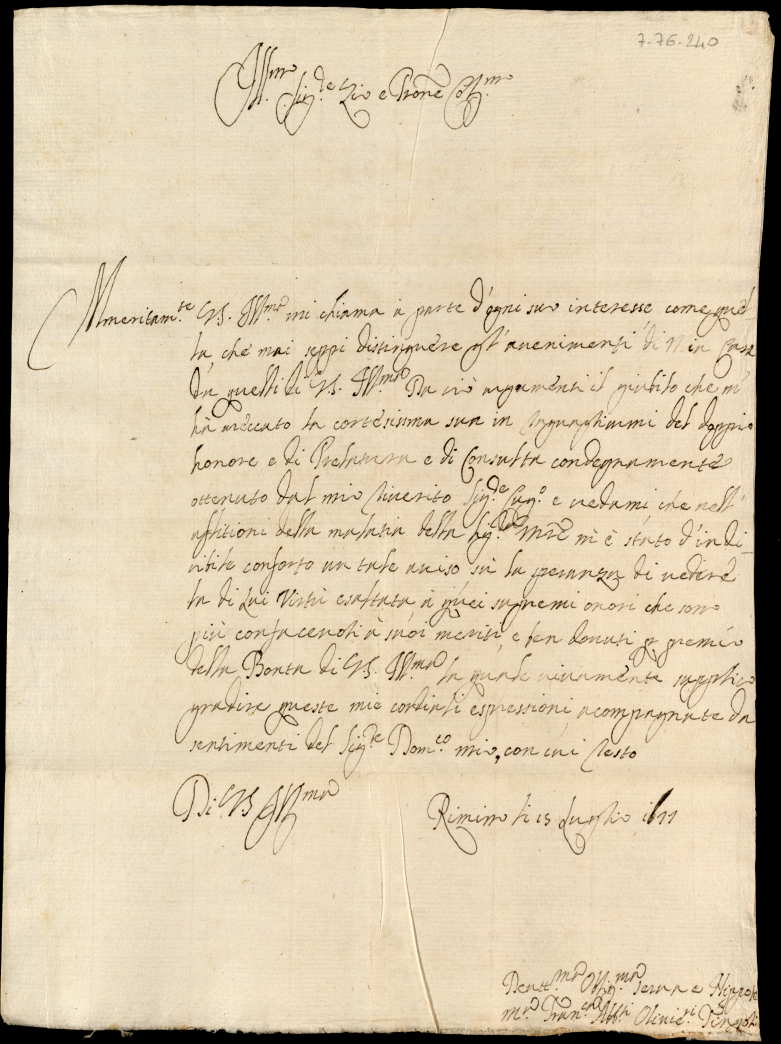 7-76-240
Ill.mo Sig.re Zio e Prone Col.mo
Meritam.te V.S. Ill.ma mi chiama à parte d'ogni suo interesse come quel
la che mai seppi distinguere gl'avenimenti di Mia Casa
da quelli di V.S. Ill.ma Da ciò argumenti il giubilo che m'
ha areccato la cortesissima sua in raguagliarmi del doppio
honore e di Prelatura e di Consulta condegnamente
ottenuto dal mio riverito Sig.re Cug.o e credami che nell'
afflitioni della malatia della Sig.ra Mre m'è stato d'indi-
cibile conforto un tale aviso sù la speranza di vedere
la di Lui Virtù esaltata à quei supremi onori che sono
più confacevoli à suoi meriti, e ben dovuti p premio
della Bontà di V.S. Ill.ma la quale vivamente supplico
gradire queste mie cordiali espressioni acompagnate da
sentimenti del Sig.re Dom.co mio, con cui resto
Di V.S. Ill.ma
Rimino li 15 Luglio
Devt.ma Oblig.ma Serva e Nipote
Olivie.ri Tingoli